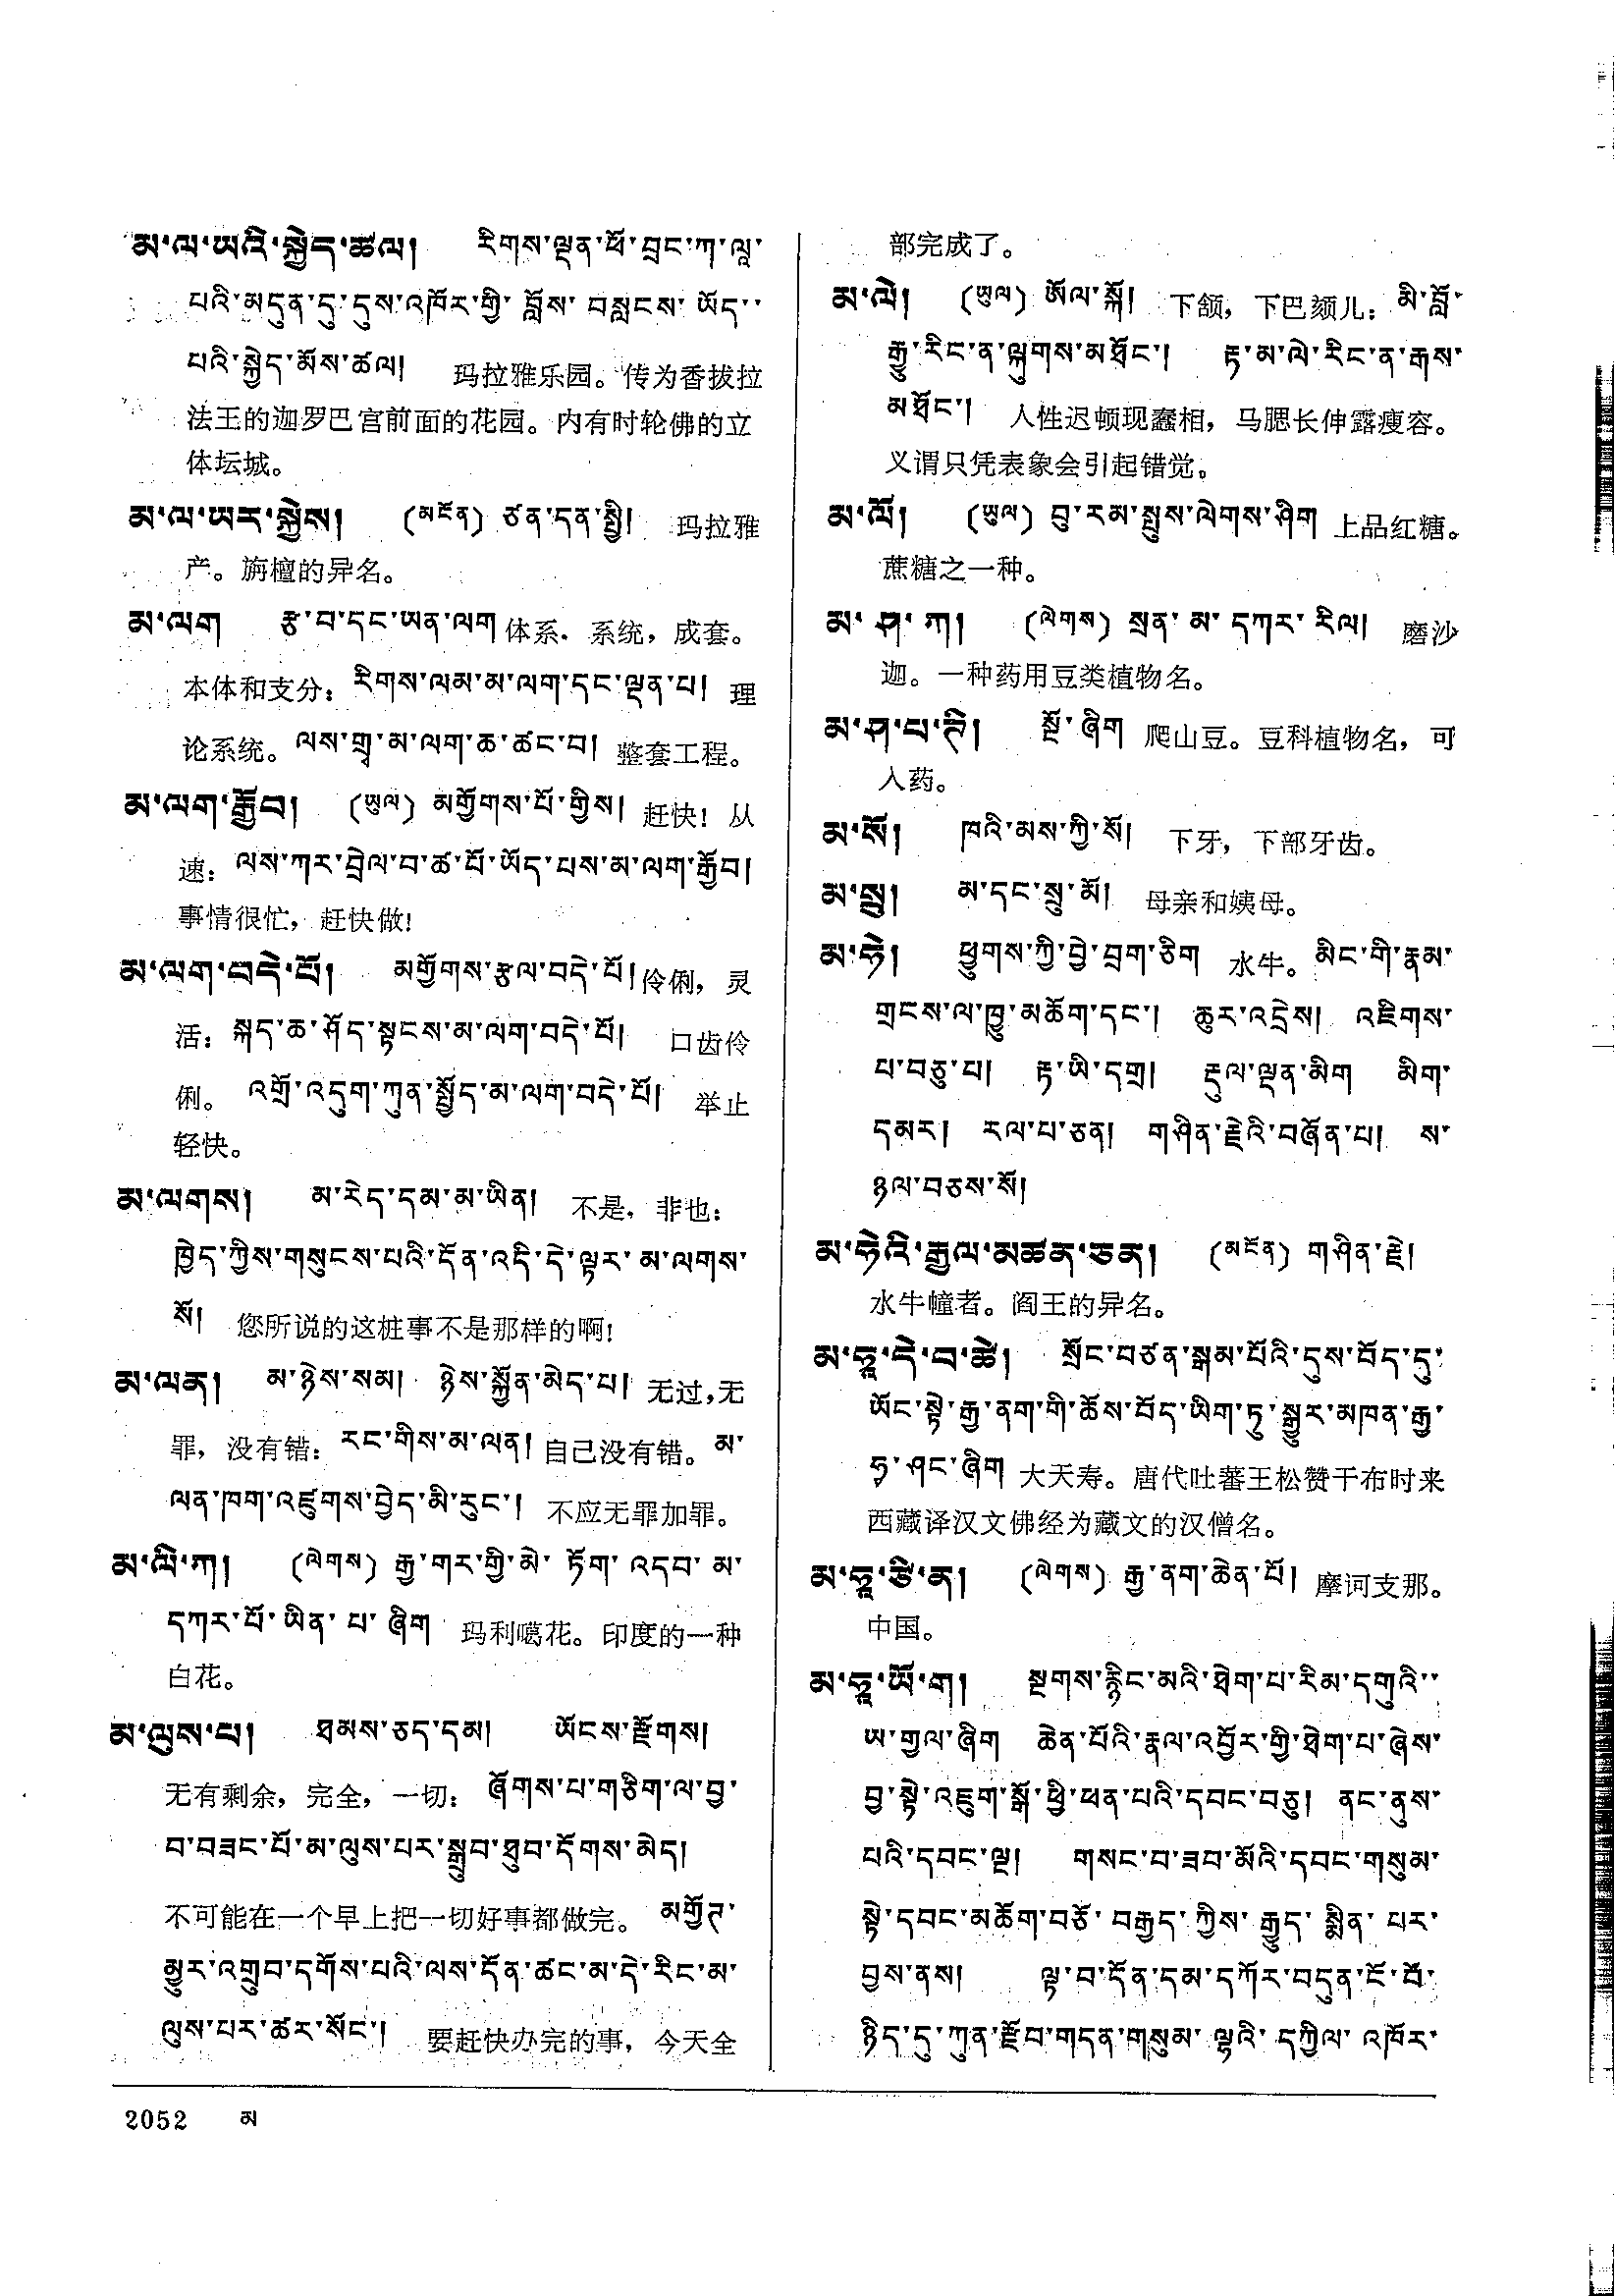 མ་ལ་ཡའི་སྐྱེད་ཚལ། རིགས་ལྡན་ཕོ་བྲང་ཀ་ལཱ་
པའི་མདུན་དུ་དུས་འཁོར་གྱི་བློས་བསླངས་ཡོད་་
པའི་སྐྱེད་མོས་ཚལ། 玛拉雅乐园。传为香拔拉
法王的迦罗巴宫前面的花园。内有时轮佛的立
体坛城。
མ་ལ་ཡར་སྐྱེས། (མངོན) ཙན་དན་སྤྱི། 玛拉雅
产。旃檀的异名。
མ་ལག རྩ་བ་དང་ཡན་ལག 体系．系统，成套。
本体和支分：རིགས་ལམ་མ་ལག་དང་ལྡན་པ། 理
论系统。ལས་གྲྭ་མ་ལག་ཆ་ཚང་བ། 整套工程。
མ་ལག་རྒྱོབ། (ཡུལ) མགྱོགས་པོ་གྱིས། 赶快！从
速：ལས་ཀར་བྲེལ་བ་ཚ་པོ་ཡོད་པས་མ་ལག་རྒྱོབ།
事情很忙，赶快做！
མ་ལག་བདེ་པོ། མགྱོགས་རྩལ་བདེ་པོ། 伶俐，灵
活：སྐད་ཆ་ཤོད་སྟངས་མ་ལག་བདེ་པོ། 口齿伶
俐。འགྲོ་འདུག་ཀུན་སྤྱོད་མ་ལག་བདེ་པོ། 举止
轻快。
མ་ལགས། མ་རེད་དམ་མ་ཡིན། 不是，非也：
ཁྱེད་ཀྱིས་གསུངས་པའི་དོན་འདི་དེ་ལྟར་མ་ལགས་
སོ། 您所说的这桩事不是那样的啊！
མ་ལན། མ་ཉེས་སམ། ཉེས་སྐྱོན་མེད་པ། 无过，无
罪，没有错：རང་གིས་མ་ལན། 自己没有错。མ་
ལན་ཁག་འཛུགས་བྱེད་མི་རུང་། 不应无罪加罪。
མ་ལི་ཀ། (ལེགས) རྒྱ་གར་གྱི་མེ་ཏོག་འདབ་མ་
དཀར་པོ་ཡིན་པ་ཞིག 玛利噶花。印度的一种
白花。
མ་ལུས་པ། ཐམས་ཅད་དམ། ཡོངས་རྫོགས།
无有剩余，完全，一切：ཞོགས་པ་གཅིག་ལ་བྱ་
བ་བཟང་པོ་མ་ལུས་པར་སྒྲུབ་ཐུབ་དོགས་མེད།
不可能在一个早上把一切好事都做完。མགྱོཊ་
མྱུར་འགྲུབ་དགོས་པའི་ལས་དོན་ཚང་མ་དེ་རིང་མ་
ལུས་པར་ཚར་སོང་། 要赶快办完的事，今天全
部完成了。
མ་ལེ། (ཡུལ) ཨོལ་སྐོ། 下颔，下巴颏儿：མི་བློ་
རྒྱུ་རིང་ན་ལྐུགས་མཐོང་། རྟ་མ་ལེ་རིང་ན་རྒས་
མཐོང་། 人性迟顿现蠢相，马腮长伸露瘦容。
义谓只凭表象会引起错觉。
མ་ལོ། (ཡུལ) བུ་རམ་སྤུས་ལེགས་ཤིག 上品红糖。
蔗糖之一种。
མ་ཤ་ཀ། (ལེགས) སྲན་མ་དཀར་རིལ། 磨沙
迦。一种药用豆类植物名。
མ་ཤ་པ་ཎི། སྔོ་ཞིག 爬山豆。豆科植物名，可
入药。
མ་སོ། ཁའི་མས་ཀྱི་སོ། 下牙，下部牙齿。
མ་སྲུ། མ་དང་སྲུ་མོ། 母亲和姨母。
མ་ཧེ། ཕྱུགས་ཀྱི་བྱེ་བྲག་ཅིག 水牛。མིང་གི་རྣམ་
གྲངས་ལ་ཁྱུ་མཆོག་དང་། ཆུར་འདྲེས། འཇིགས་
པ་བཅུ་པ། རྟ་ཡི་དགྲ། རྡུལ་ལྡན་མིག མིག་
དམར། རལ་པ་ཅན། གཤིན་རྗེའི་བཞོན་པ། ས་
ཉལ་བཅས་སོ།
མ་ཧེའི་རྒྱལ་མཚན་ཅན། (མངོན) གཤིན་རྗེ།
水牛幢者。阎王的异名。
མ་ཧཱ་དེ་བ་ཚེ། སྲོང་བཙན་སྒམ་པོའི་དུས་བོད་དུ་
ཡོང་སྟེ་རྒྱ་ནག་གི་ཆོས་བོད་ཡིག་ཏུ་སྒྱུར་མཁན་རྒྱ་
ཧྭ་ཤང་ཞིག 大天寿。唐代吐蕃王松赞干布时来
西藏译汉文佛经为藏文的汉僧名。
མ་ཧཱ་ཙི་ན། (ལེགས) རྒྱ་ནག་ཆེན་པོ། 摩诃支那。
中国。
མ་ཧཱ་ཡོ་ག། སྔགས་རྙིང་མའི་ཐེག་པ་རིམ་དགུའི་་
ཨ་གྱལ་ཞིག ཆེན་པོའི་རྣལ་འབྱོར་གྱི་ཐེག་པ་ཞེས་
བྱ་སྟེ་འཇུག་སྒོ་ཕྱི་ཕན་པའི་དབང་བཅུ། ནང་ནུས་
པའི་དབང་ལྔ། གསང་བ་ཟབ་མོའི་དབང་གསུམ་
སྟེ་དབང་མཆོག་བཅོ་བརྒྱད་ཀྱིས་རྒྱུད་སྨིན་པར་
བྱས་ནས། ལྟ་བ་དོན་དམ་དཀོར་བདུན་ངོ་བོ་
ཉིད་དུ་ཀུན་རྫོབ་གདན་གསུམ་ལྷའི་དཀྱིལ་འཁོར་
2052 མ